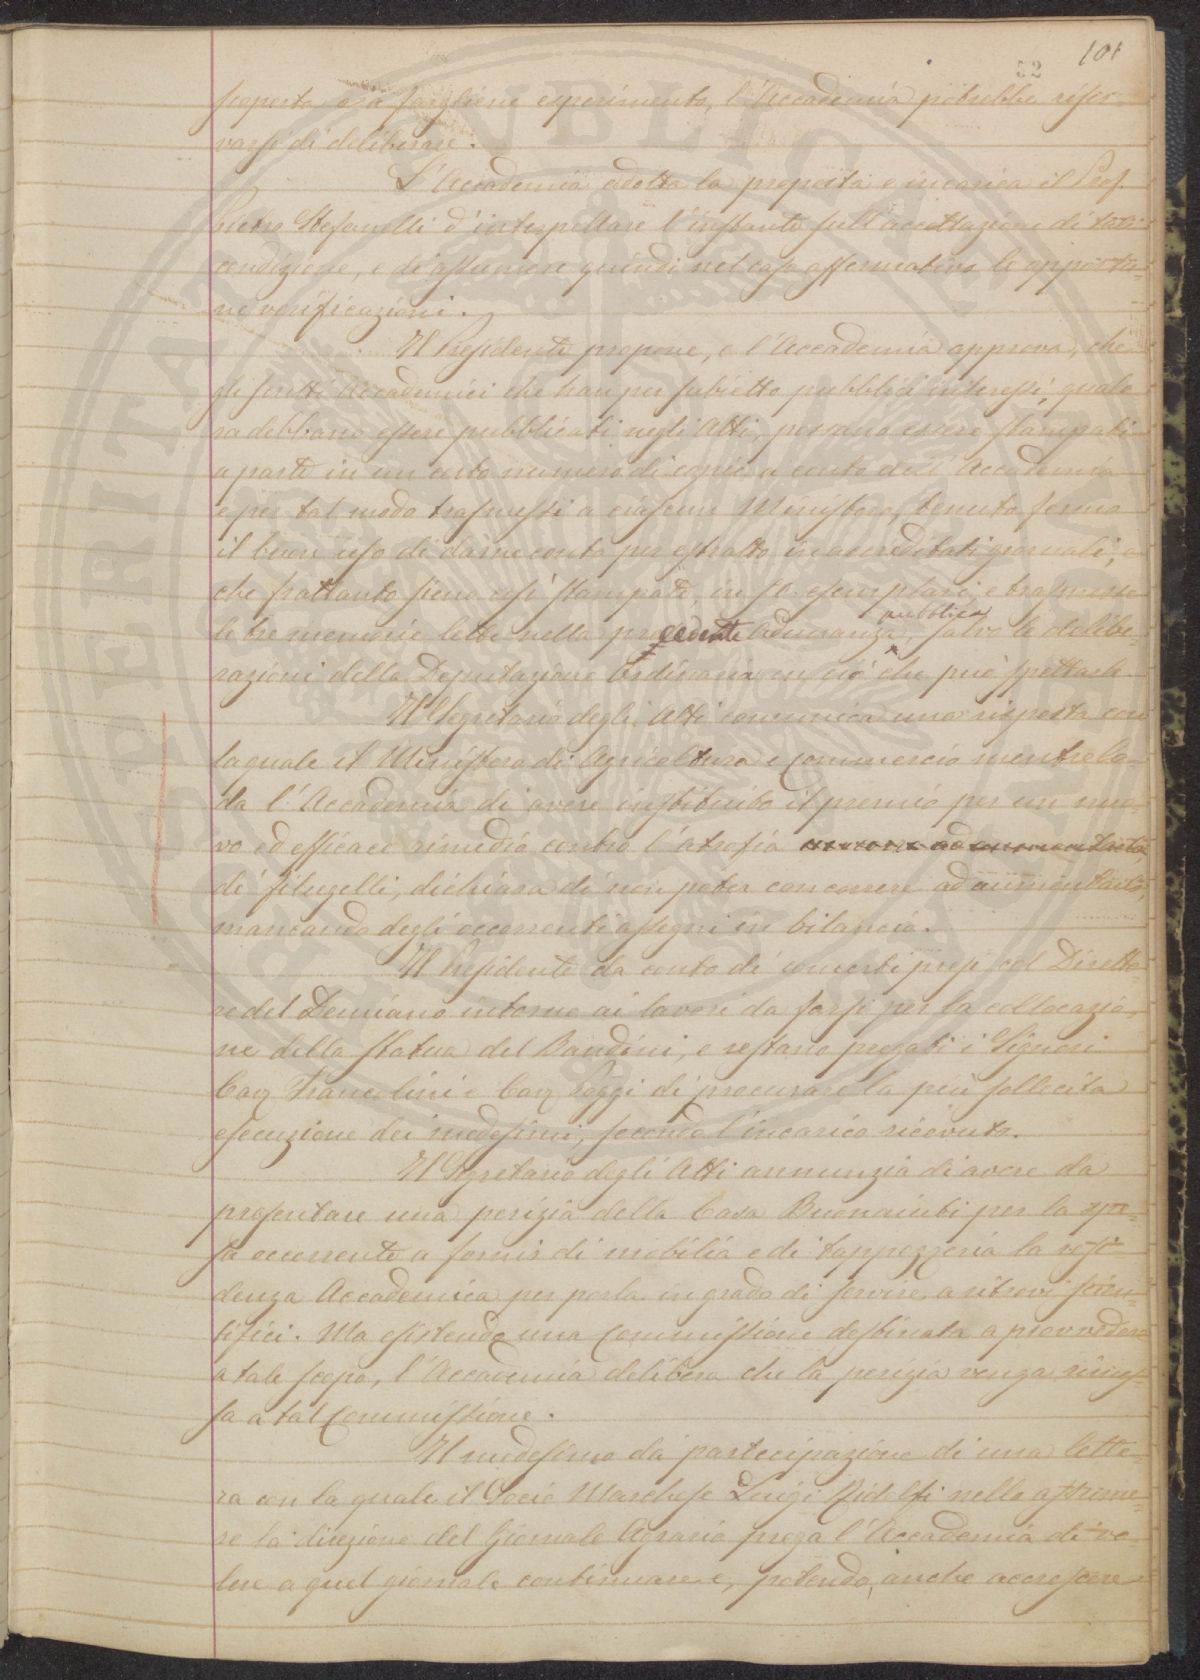 101
52
scoperta, o sia fargliene esperimento, l'Accademia potrebbe riser-
varsi di deliberare.
L'Accademia adotta la proposta e incarica il Prof.
Pietro Stefanelli d'interpellare l'instante sull'accettazione di tal
condizione, e di assumere quindi nel caso affermativo le opportu-
ne verificazioni.
Il Presidente propone, e l'Accademia approva, che
gli scritti Accademici che han per subietto pubblici interessi, qualo
ra debbano essere pubblicati negli Atti, possano essere stampati
a parte in un certo numero di copie a conto dell'Accademia
e per tal modo trasmessi a ciascun Ministero, tenuto fermo
il buon uso di darne conto per estratto in accreditati giornali, e
che frattanto sieno così stampate, in 50 esemplari, e trasmesse
le tre memorie lette nella precedente Adunanza pubblica, salvo le delibe-
razioni della Deputazione Ordinaria in ciò che può spettarle.
Il Segretario degli Atti comunica una risposta con
la quale il Ministero di Agricoltura e Commercio mentre lo-
da l'Accademia di avere instituito il premio per un nuo-
vo ed efficace rimedio contro l'atrofia
di' filugelli, dichiara di non poter concorrere ad aumentarlo,
mancando degli occorrenti assegni in bilancio.
Il Presidente da conto di' concerti presi col Dirett-
re del Demanio intorno ai lavori da farsi per la collocazio-
ne della statua del Bandini, e restano pregati i Signori
Cav. Francolini e Cav. Poggi di procurare la più sollecita
esecuzione dei medesimi, secondo l'incarico ricevuto.
Il Segretario degli Atti annunzia di avere da
presentare una perizia della Casa Buonaiuti per la spe-
sa occorrente a fornir di mobilia e di tappezzeria la resi-
denza Accademica per porla in grado di servire a ritrovi scien-
tifici. Ma esistendo una Commissione destinata a provvedere
a tale scopo, l'Accademia delibera che la perizia venga rimes-
sa a tal Commissione.
Il medesimo da partecipazione di una lette-
ra con la quale il Socio Marchese Luigi Ridolfi nello assume-
re la direzione del Giornale Agrario prega l'Accademia di vo-
lere a quel giornale continuare e, potendo, anche accrescere